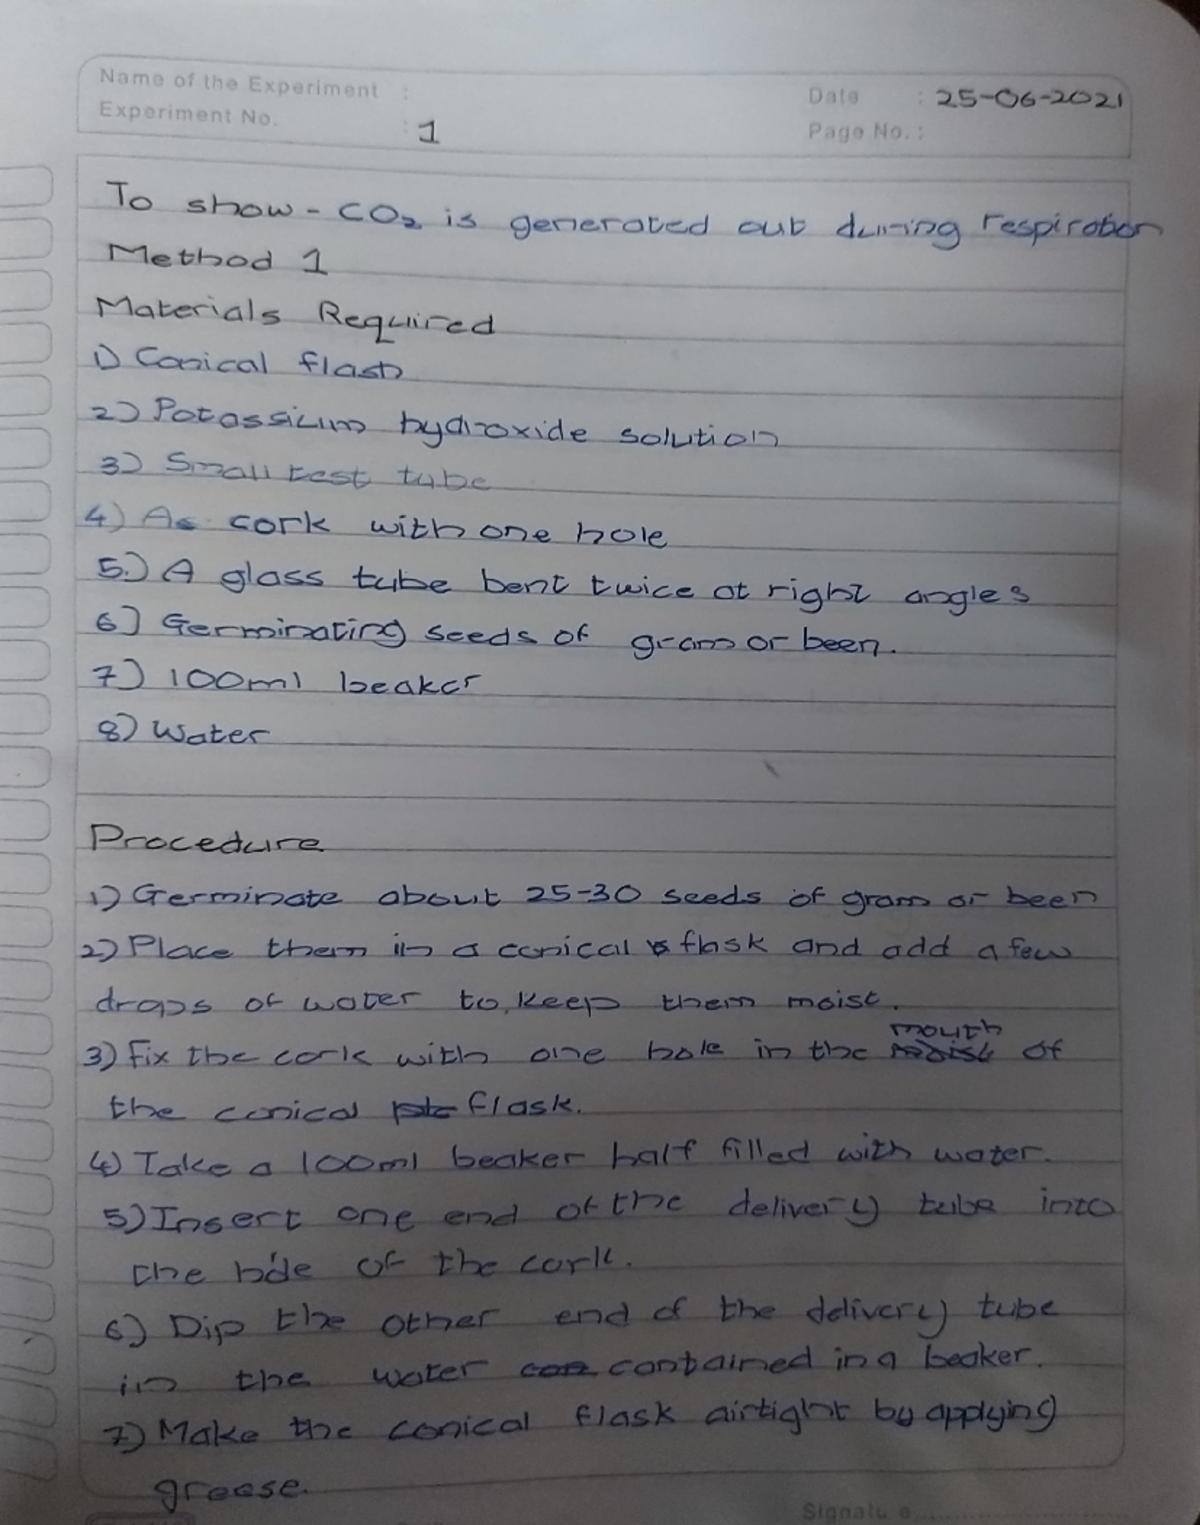 Name of the Experiment :
Date : 25-06-2021
Experiment No. : 1
Page No. :
To show - CO2 is generated out during respiration
Method 1
Materials Required
1) Conical flash
2) Potassium hydroxide solution
3) Small test tube
4) As cork with one hole
5.) A glass tube bent twice at right angles
6) Germinating seeds of gram or been.
7) 100ml beaker
8) Water
Procedure
1) Germinate about 25-30 seeds of gram or been
2) Place them in a conical flask and add a few
drops of water to keep them moist.
mouth
3) Fix the cork with one hole in the of
the conical flask.
4) Take a 100ml beaker half filled with water.
5) Insert one end of the delivery tube into
the hole of the cork.
6) Dip the other end of the delivery tube
in the water contained in a beaker.
7) Make the conical flask airtight by applying
grease.